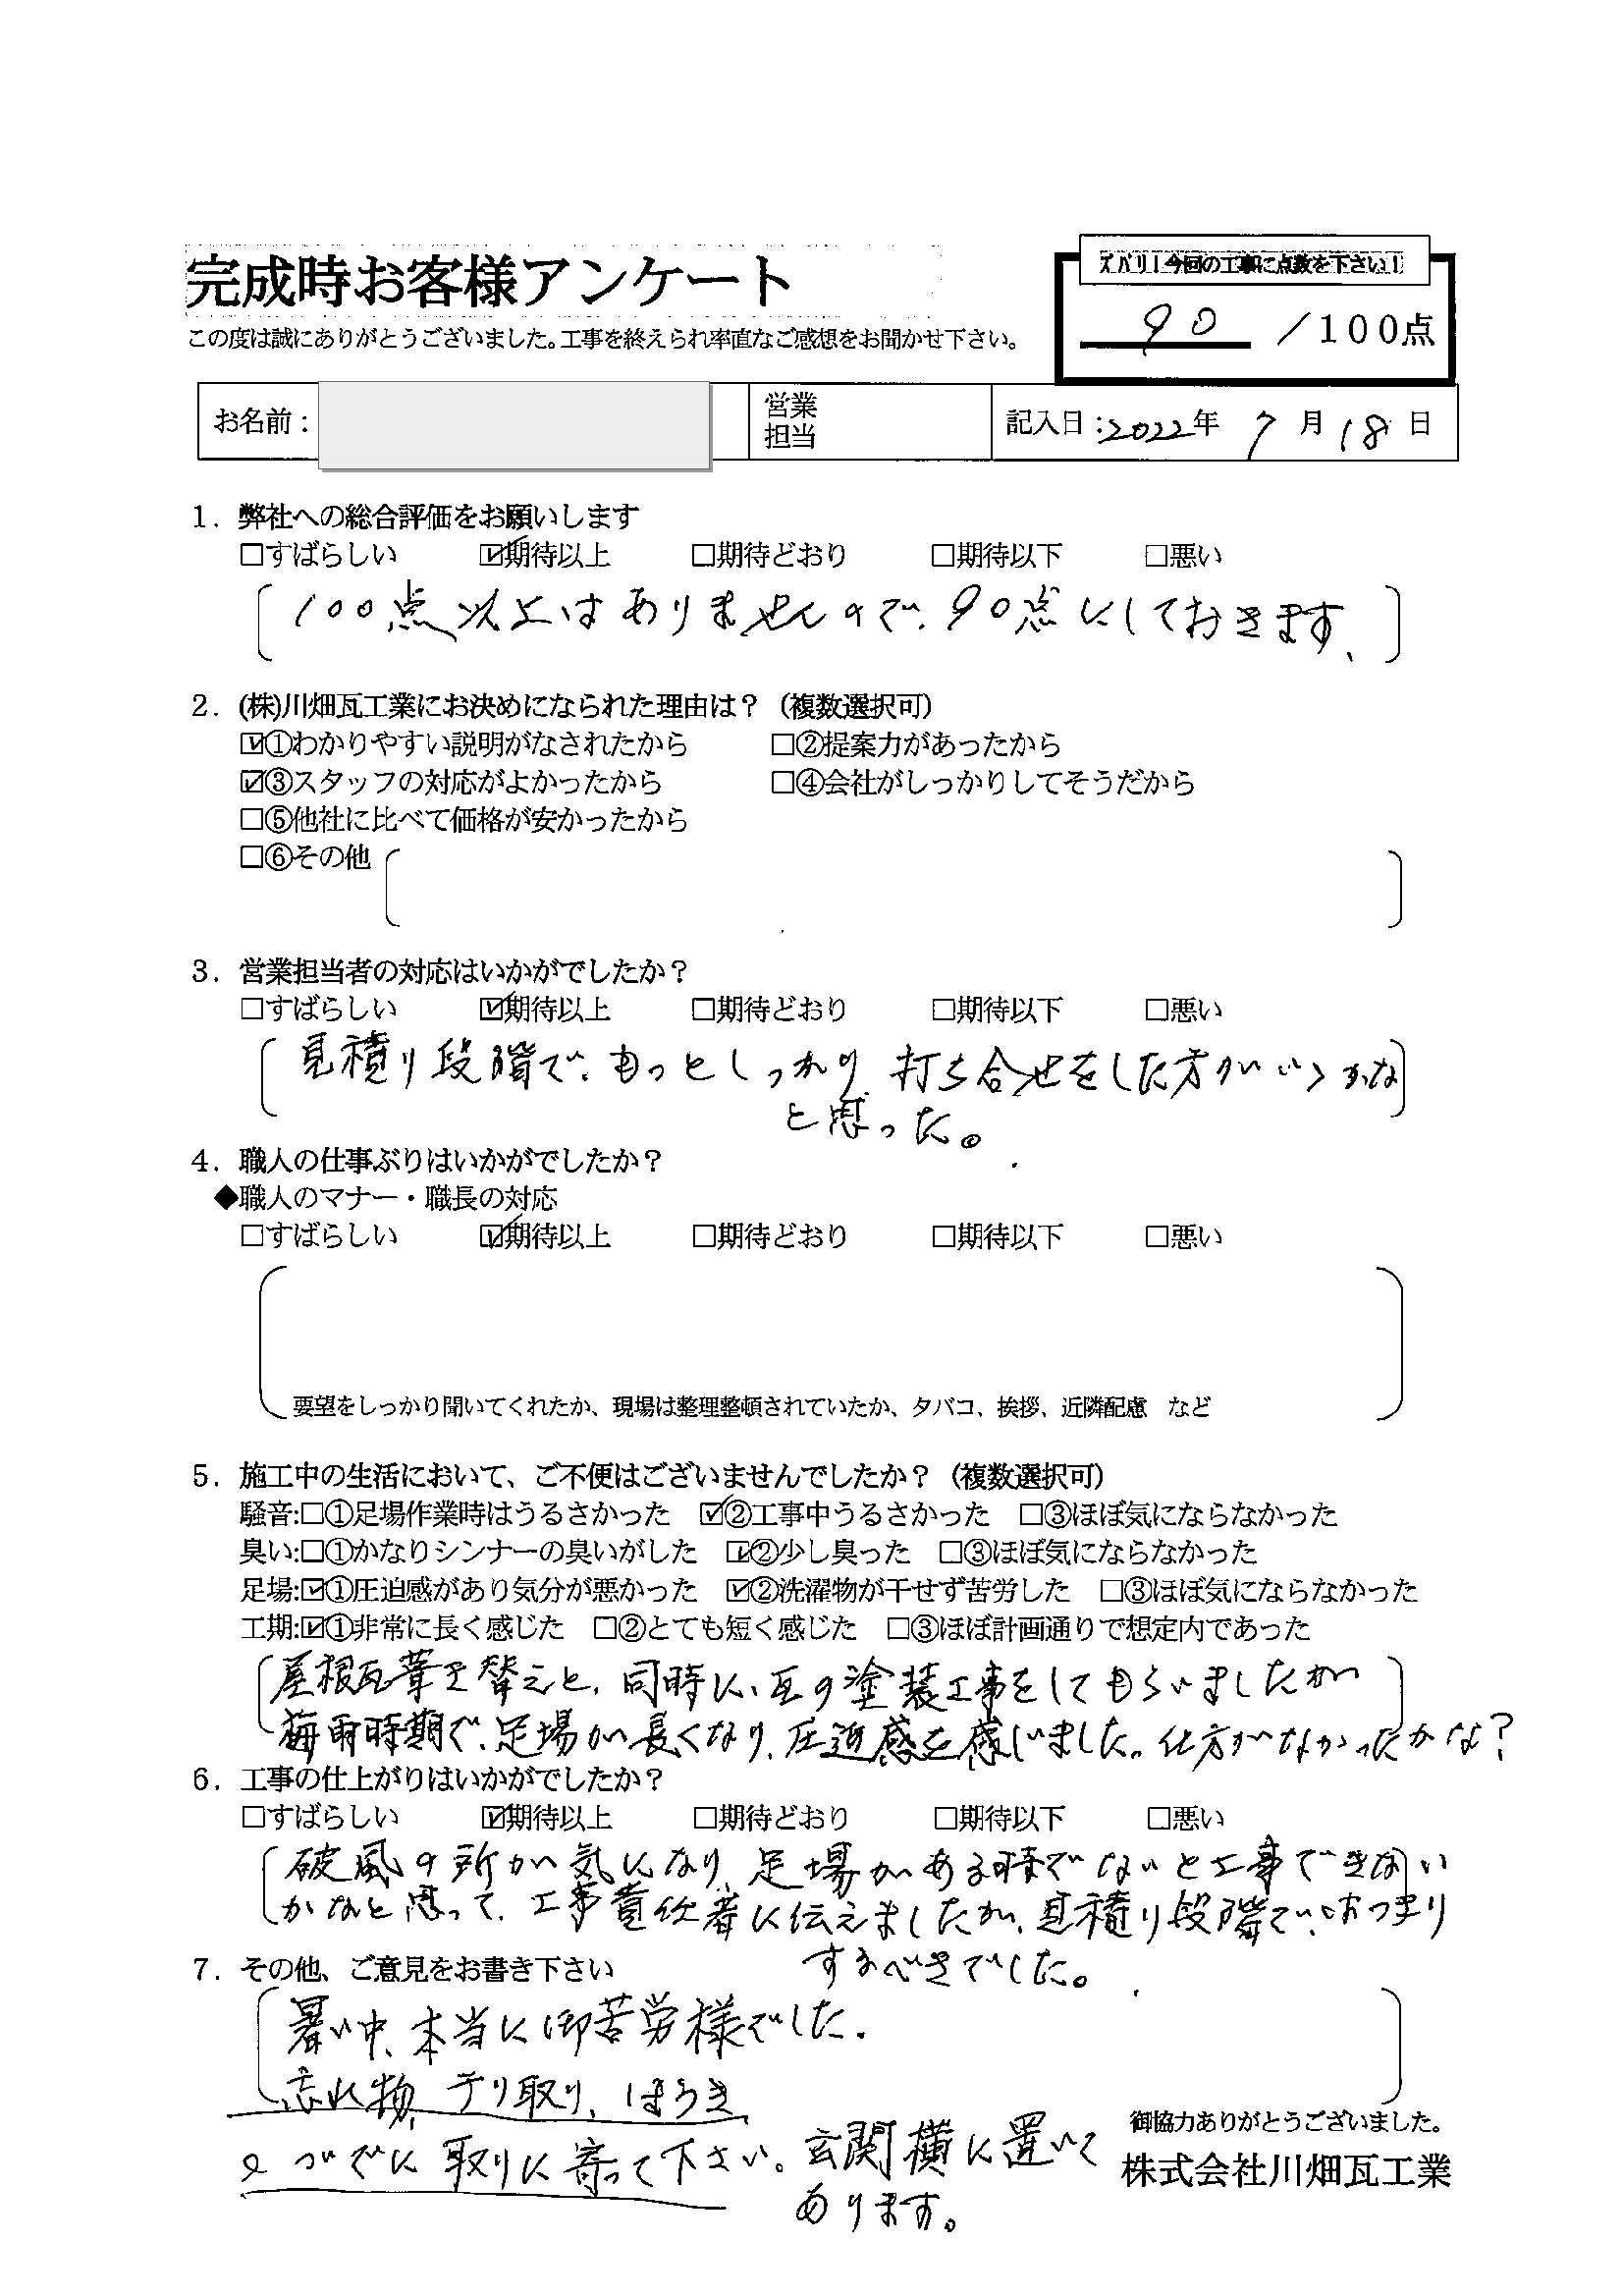 完成時お客様アンケート
この度は誠にありがとうございました。工事を終えられ率直なご感想をお聞かせ下さい。
ズバリ！今回の工事に点数を下さい！
90 ／100点
お名前：
営業
担当
記入日：2022年 7月18日
1．弊社への総合評価をお願いします
□すばらしい ☑期待以上 □期待どおり □期待以下 □悪い
100点以上はありませんので、90点にしておきます、
2．(株)川畑瓦工業にお決めになられた理由は？（複数選択可）
☑①わかりやすい説明がなされたから □②提案力があったから
☑③スタッフの対応がよかったから □④会社がしっかりしてそうだから
□⑤他社に比べて価格が安かったから
□⑥その他
3．営業担当者の対応はいかがでしたか？
□すばらしい ☑期待以上 □期待どおり □期待以下 □悪い
見積り段階で、もっとしっかり、打ち合せをした方がいゝかな
と思った。
4．職人の仕事ぶりはいかがでしたか？
◆職人のマナー・職長の対応
□すばらしい ☑期待以上 □期待どおり □期待以下 □悪い
要望をしっかり聞いてくれたか、現場は整理整頓されていたか、タバコ、挨拶、近隣配慮 など
5．施工中の生活において、ご不便はございませんでしたか？（複数選択可）
騒音:□①足場作業時はうるさかった ☑②工事中うるさかった □③ほぼ気にならなかった
臭い:□①かなりシンナーの臭いがした ☑②少し臭った □③ほぼ気にならなかった
足場:☑①圧迫感があり気分が悪かった ☑②洗濯物が干せず苦労した □③ほぼ気にならなかった
工期:☑①非常に長く感じた □②とても短く感じた □③ほぼ計画通りで想定内であった
屋根瓦葺き替えと、同時に、瓦の塗装工事をしてもらいましたが
梅雨時期で、足場が長くなり、圧迫感を感じました。仕方がなかったかな？
6．工事の仕上がりはいかがでしたか？
□すばらしい ☑期待以上 □期待どおり □期待以下 □悪い
破風の所が気になり、足場がある時でないと工事できない
かなと思って、工事責任者に伝えましたが、見積り段階で、はっきり
するべきでした。
7．その他、ご意見をお書き下さい
暑い中、本当に御苦労様でした.
忘れ物、チリ取り、ほうき
ついでに取りに寄って下さい。玄関横に置いて
あります。
御協力ありがとうございました。
株式会社川畑瓦工業